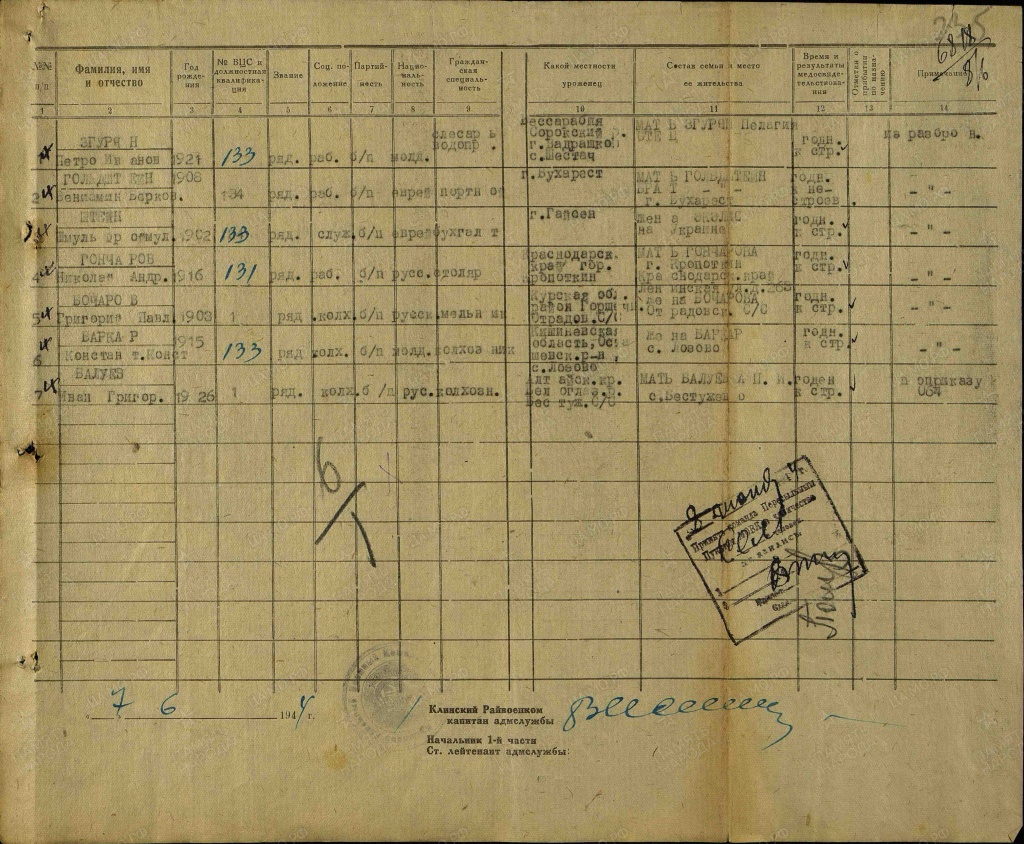 6818
8/6
№№ п/п
Фамилия, имя и отчество
Год рождения
№ ВЦС и должностная квалификация
Звание
Соц. положение
Партийность
Национальность
Гражданская специальность
Какой местности уроженец
Состав семьи и место ее жительства
Время и результаты медосвидетельствования
Отметка о прибытии по назначению
Примечание
1 2 3 4 5 6 7 8 9 10 11 12 13 14
ЗГУРЯ Н
Петро Ив анов 1921 133 ряд. раб. б/п молд.
слесар ь
водопр .
Бессарабия
Сорокский р.
с.Шестач
МАТ Ь ЗГУРЯН Пелагия
годн.
к стр.
из разбро н.
2 ГОЛЬДШТ ЕЙН 1908
Бениамин Берков. 134 ряд. раб. б/п еврей портн ой
г.Бухарест
МАТ Ь ГОЛЬДШТЕЙН
БРА Т - " -
г. Бухарест
годн.
к не-
строев .
- " -
ШТЕЙН
1902 133 ряд. служ. б/п еврей бухгал т
г.Гайсен
жен а
на Украине
годн.
к стр.
- " -
4 ГОНЧА РОВ
Николай Андр. 1916 131 ряд. раб. б/п русс. столяр
Краснодарск.
край гор.
Кропоткин
МАТ Ь ГОНЧАРОВА
г. Кропоткин
Кра снодарск.край
Лен инская ул.д.263
годн.
к стр.
- " -
5 БОЧАРО В
Григорий Павл. 1903 1 ряд .колх. б/п русск. мельн ик
Курская об .
район Горшечн.
Отрадов.С/С
же на БОЧАРОВА
От радовск. С/С
годн.
к стр.
- " -
6 БАРКА Р 1915
Констан т.Конст 133 ряд колх. б/п молд. колхоз ник
Кишиневская
область,
с.Лозово
же на БАРКАР
с. Лозово
годн.
к стр.
- " -
7 БАЛУЕВ
Иван Григор. 19 26 1 ряд. колх. б /п рус. колхозн.
Алт айск.кр.
Бес туж.С/С
МАТЬ БАЛУЕВ А П. И.
с.Бестужев о
годен
к стр.
п оприказу
064
6/1
8 июня
"7" 6 1944 г.
Клинский Райвоенком
капитан адмслужбы
Начальник 1-й части
Ст. лейтенант адмслужбы: